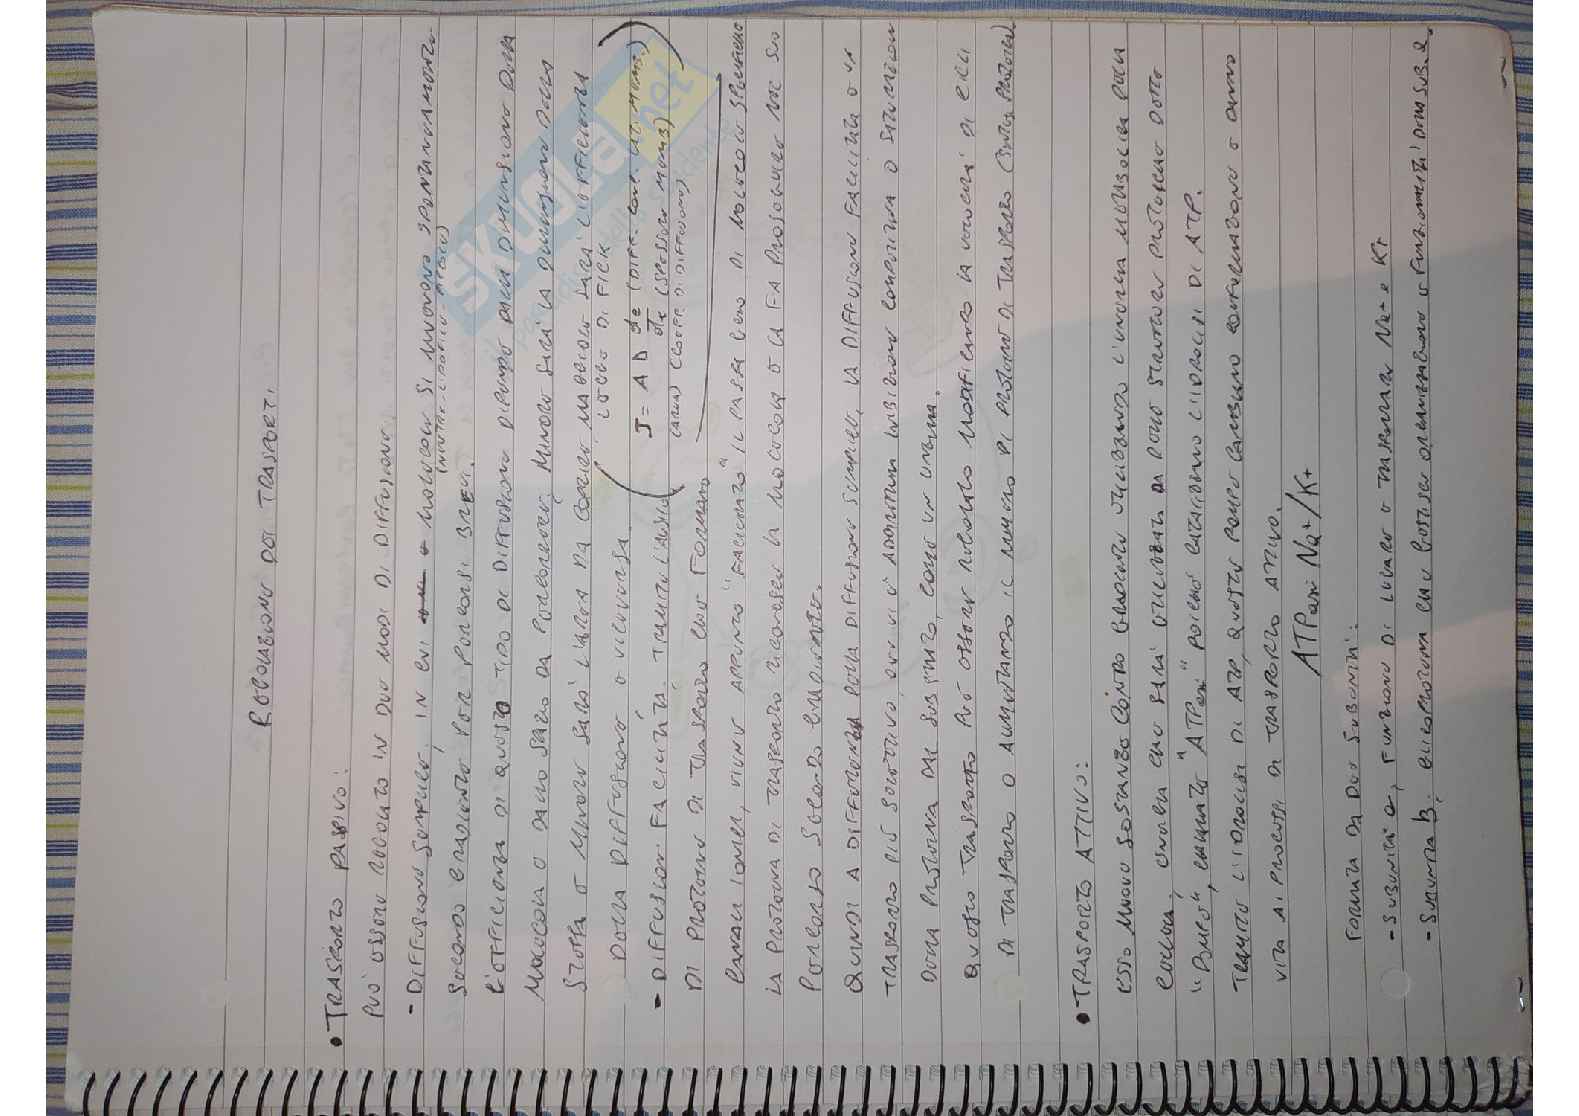 REGOLAZIONE DEI TRASPORTI
• TRASPORTO PASSIVO:
PUÒ ESSERE REGOLATO IN DUE MODI DI DIFFUSIONE
- DIFFUSIONE SEMPLICE, IN CUI MOLECOLE SI MUOVONO SPONTANEAMENTE
SECONDO GRADIENTE, PER PERCORSI BREVI.
L'EFFICIENZA DI QUESTO TIPO DI DIFFUSIONE DIPENDE DALLA DIMENSIONE DELLA
MOLECOLA O DALLO STATO DA PERCORRERE, MINORE SARÀ LA DIMENSIONE DELLA
STESSA E MINORE SARÀ L'AREA DA COPRIRE MAGGIORE SARÀ L'EFFICIENZA
DELLA DIFFUSIONE O VICEVERSA.
(LEGGE DI FICK
J = A D dc/dx (DIFF. CONC. LAT. MEMB.)
(SPESSORE MEMB)
(AREA) (COEFF. DI DIFFUSIONE)
- DIFFUSIONE FACILITATA, TRAMITE L'AUSILIO
DI PROTEINE DI TRASPORTO CHE FORMANO
CANALI IONICI, VIENE APPUNTO "FACILITATO" IL PASSAGGIO DI MOLECOLE
LA PROTEINA DI TRASPORTO RICONOSCE LA MOLECOLA E LA FA PROSEGUIRE NEL SUO
PERCORSO SECONDO GRADIENTE.
QUINDI A DIFFERENZA DELLA DIFFUSIONE SEMPLICE, LA DIFFUSIONE FACILITATA È UN
TRASPORTO PIÙ SELETTIVO, OVE VI È ADDIRITTURA INIBIZIONE COMPETITIVA O SATURAZIONE
DELLA PROTEINA DAL SUBSTRATO, COME UN ENZIMA.
QUESTO TRASPORTO PUÒ ESSERE REGOLATO MODIFICANDO LA VELOCITÀ DI
DI TRASPORTO O AUMENTANDO IL NUMERO DI PROTEINE DI TRASPORTO (SINTESI PROTEICA)
• TRASPORTO ATTIVO:
ESSO MUOVE SOSTANZE CONTRO GRADIENTE UTILIZZANDO L'ENERGIA METABOLICA DELLA
CELLULA, ENERGIA CHE SARÀ UTILIZZATA DA DELLE STRUTTURE PROTEICHE DETTE
"POMPE", CHIAMATE "ATPasi" POICHÉ CATALIZZANO L'IDROLISI DI ATP.
TRAMITE L'IDROLISI DI ATP, QUESTE POMPE CAMBIANO CONFORMAZIONE E DANNO
VITA AI PROCESSI DI TRASPORTO ATTIVO.
ATPasi Na+/K+
FORMATA DA DUE SUBUNITÀ:
- SUBUNITÀ a, FUNZIONE DI LEGARE E TRASPORTARE Na+ e K+
- SUBUNITÀ b, GLICOPROTEINA CHE
skuola.net